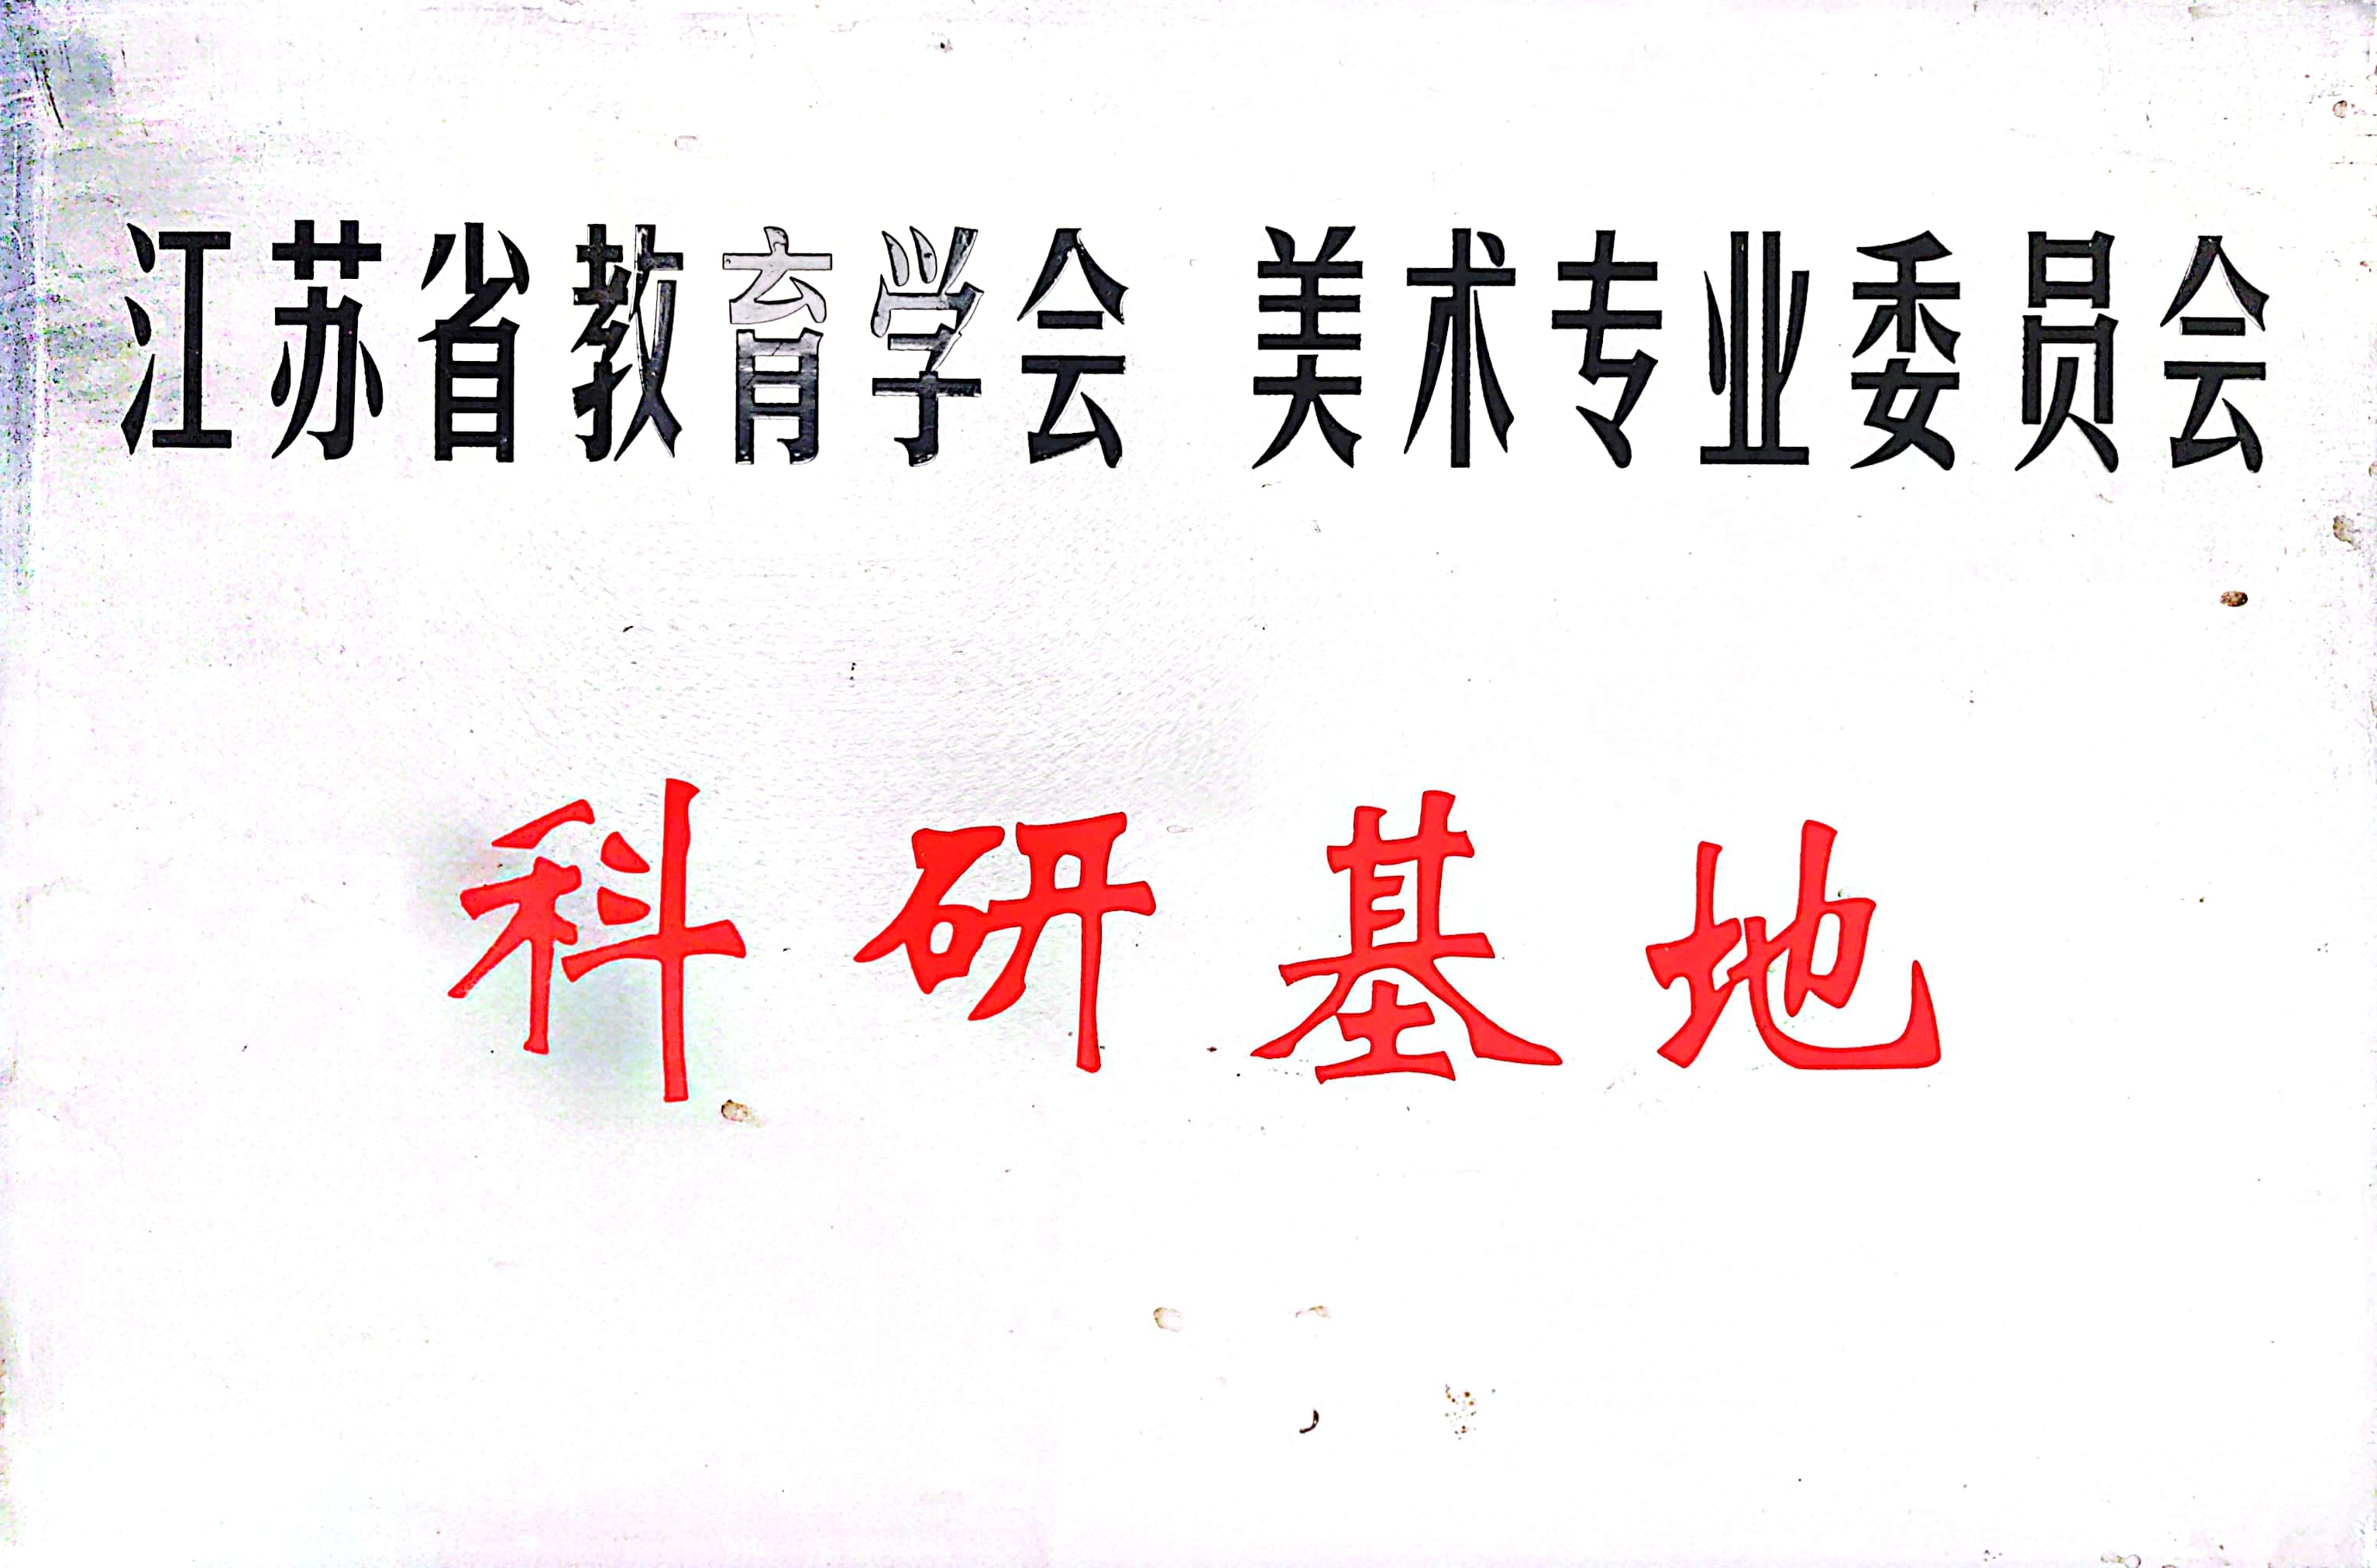 江苏省教育学会 美术专业委员会
科研基地